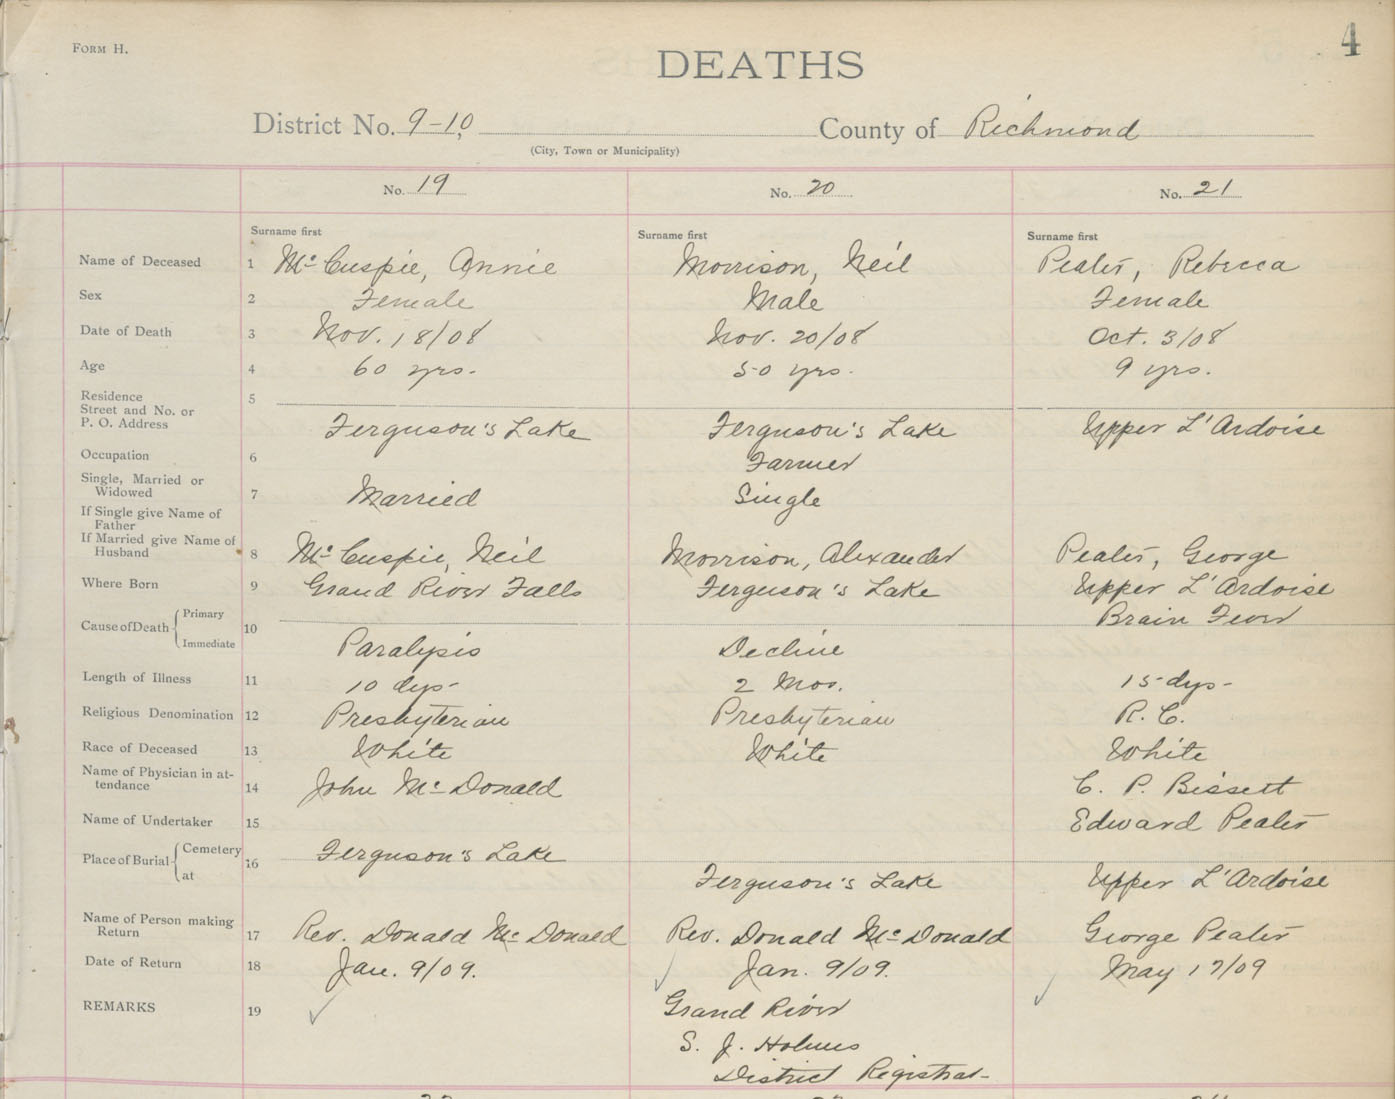 4
FORM H.
DEATHS
District No. 9-10, County of Richmond
(City, Town or Municipality)
No. 19 No. 20 No. 21
Surname first Surname first Surname first
Name of Deceased 1 Mc Cuspie, Annie Morrison, Neil Peater, Rebecca
Sex 2 Female Male Female
Date of Death 3 Nov. 18/08 Nov. 20/08 Oct. 3/08
Age 4 60 yrs. 50 yrs. 9 yrs.
Residence 5
Street and No. or
P. O. Address Ferguson's Lake Ferguson's Lake Upper L'Ardoise
Occupation 6 Farmer
Single, Married or
Widowed 7 Married Single
If Single give Name of
Father
If Married give Name of
Husband 8 Mc Cuspie, Neil Morrison, Alexander Peater, George
Where Born 9 Grand River Falls Ferguson's Lake Upper L'Ardoise
Cause of Death Primary Brain Fever
10
Immediate Paralysis Decline
Length of Illness 11 10 dys- 2 Mos. 15 dys-
Religious Denomination 12 Presbyterian Presbyterian R. C.
Race of Deceased 13 White White White
Name of Physician in at-
tendance 14 John Mc Donald C. P. Bissett
Name of Undertaker 15 Edward Peater
Place of Burial Cemetery Ferguson's Lake
16
at Ferguson's Lake Upper L'Ardoise
Name of Person making
Return 17 Rev. Donald Mc Donald Rev. Donald Mc Donald George Peater
Date of Return 18 Jan. 9/09. Jan. 9/09. May 17/09
REMARKS 19 Grand River
S. J. Holmes
District Registrar-